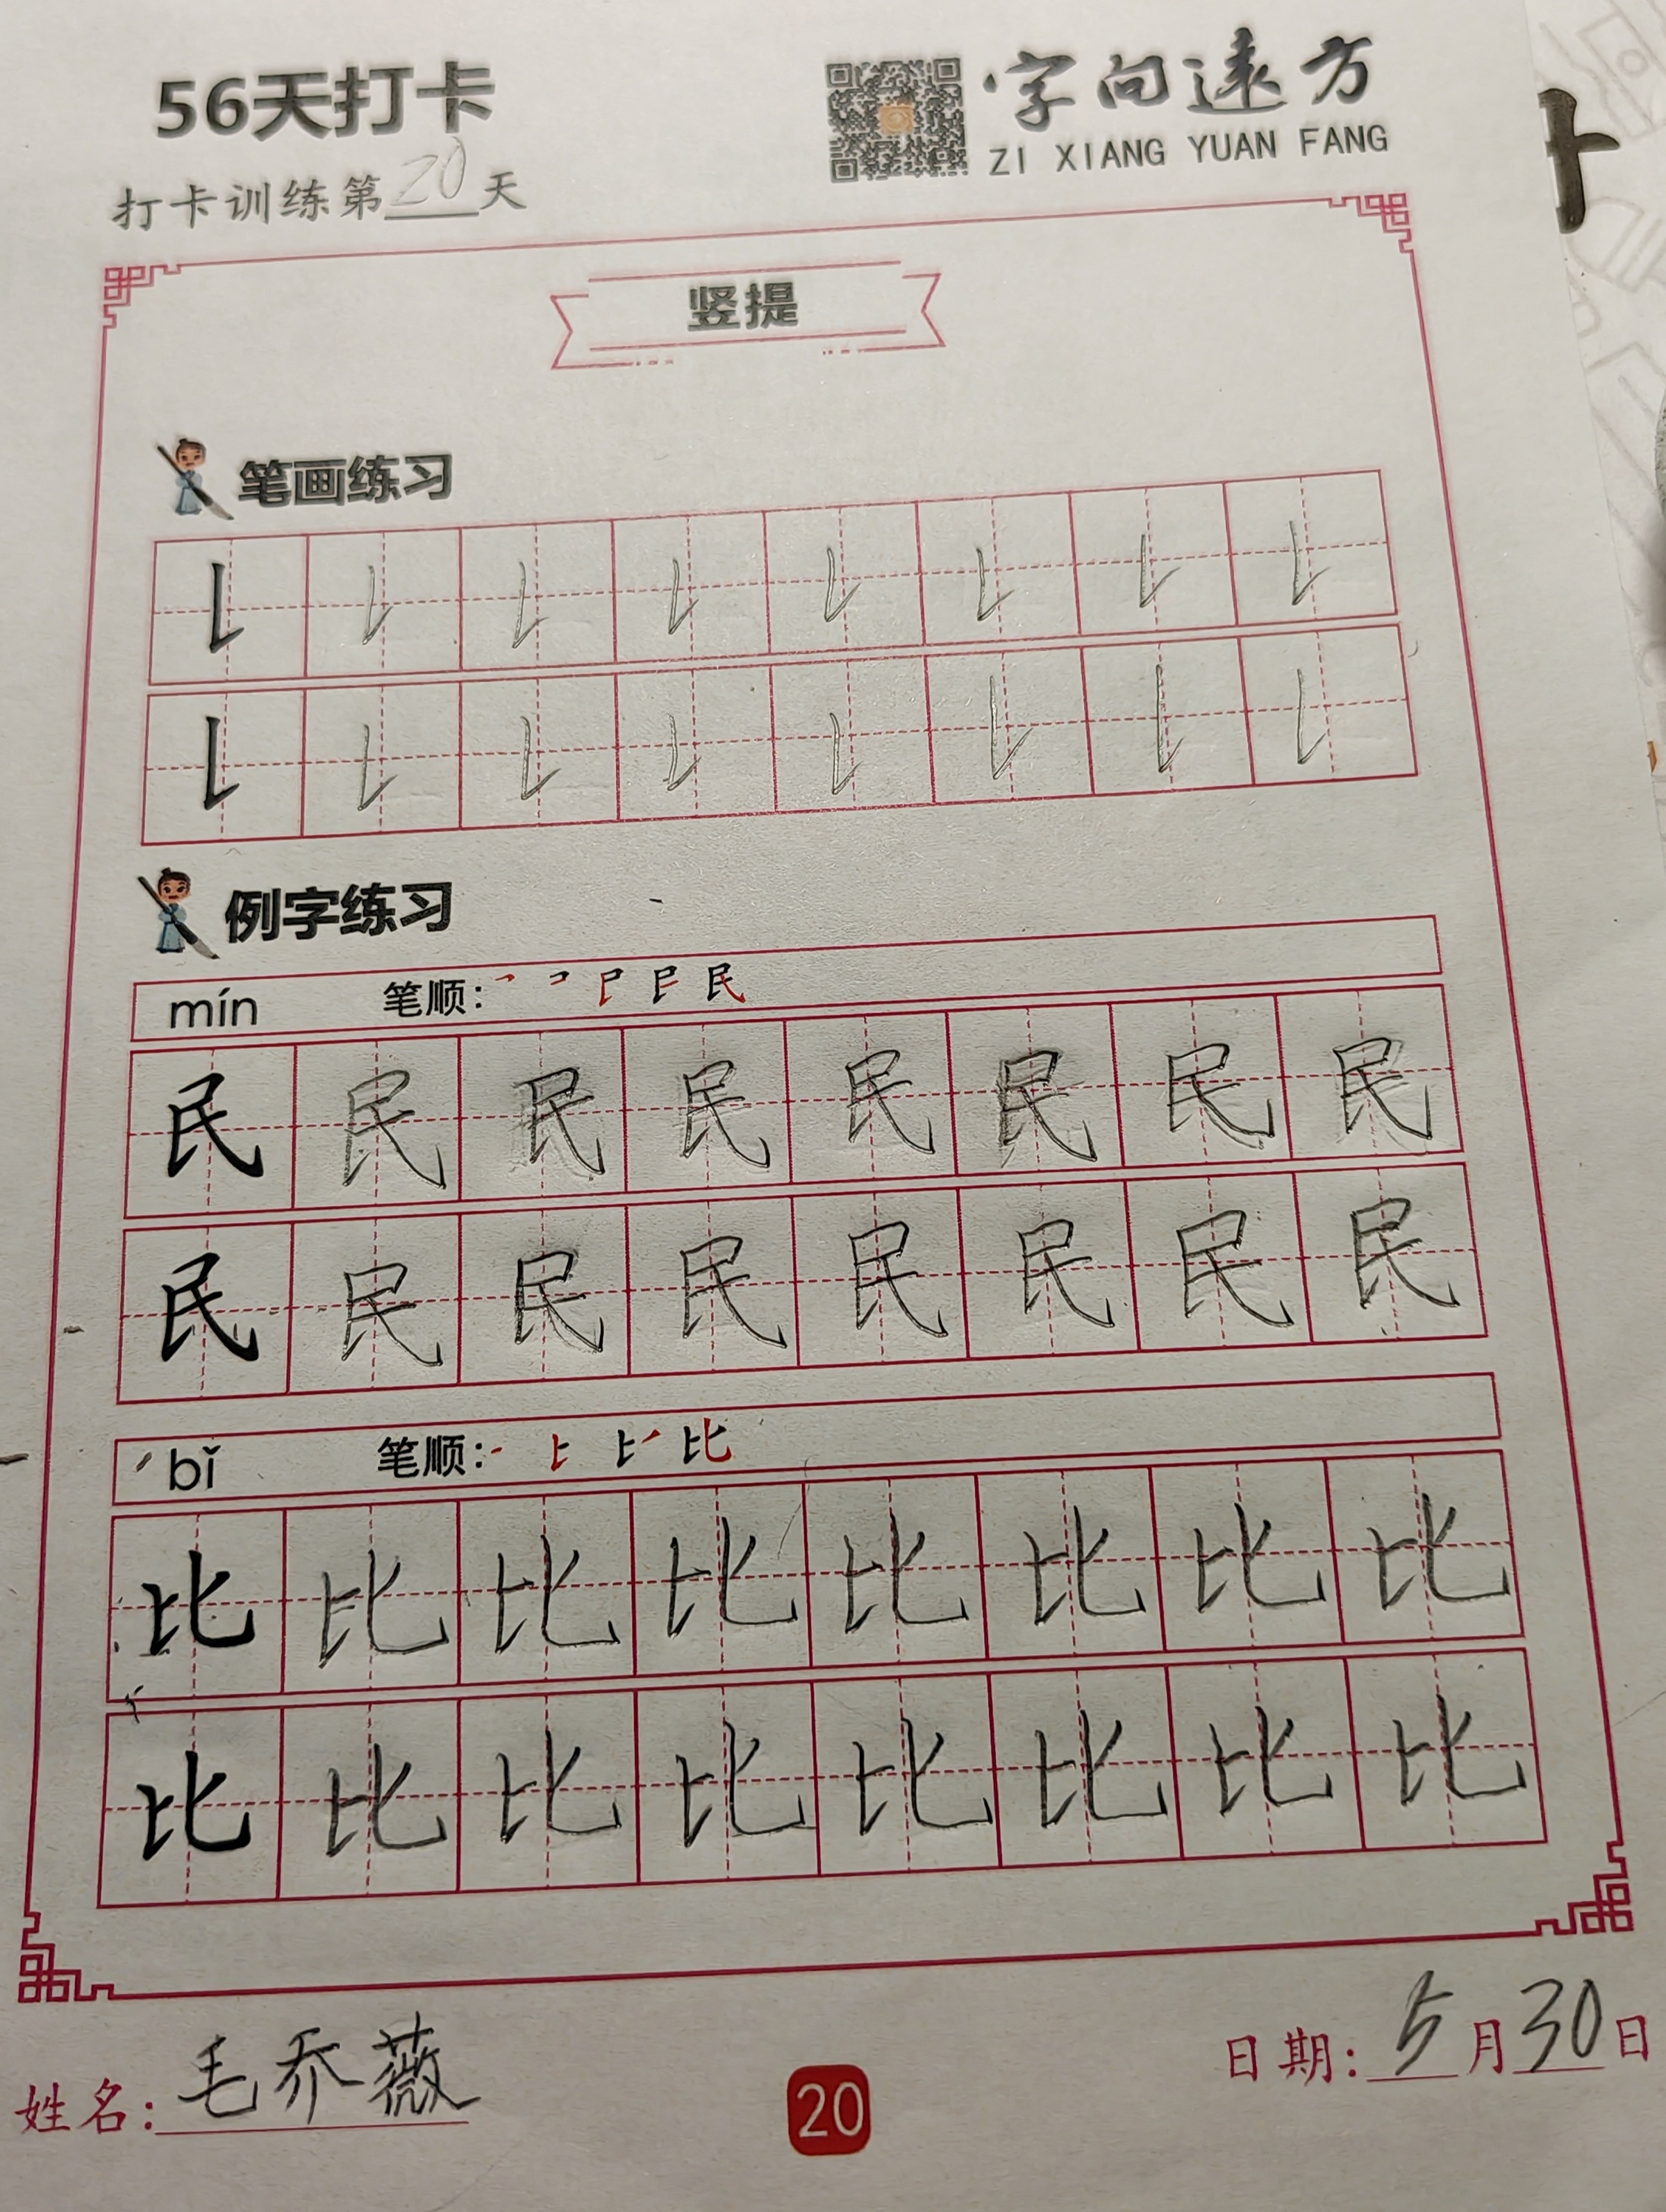 56天打卡
字向远方
ZI XIANG YUAN FANG
打卡训练第20天
竖提
笔画练习
例字练习
mín 笔顺: 民
民 民 民 民 民 民 民 民
民 民 民 民 民 民 民 民
bǐ 笔顺: 比
比 比 比 比 比 比 比 比
比 比 比 比 比 比 比 比
姓名: 毛乔薇
20
日期: 5月30日